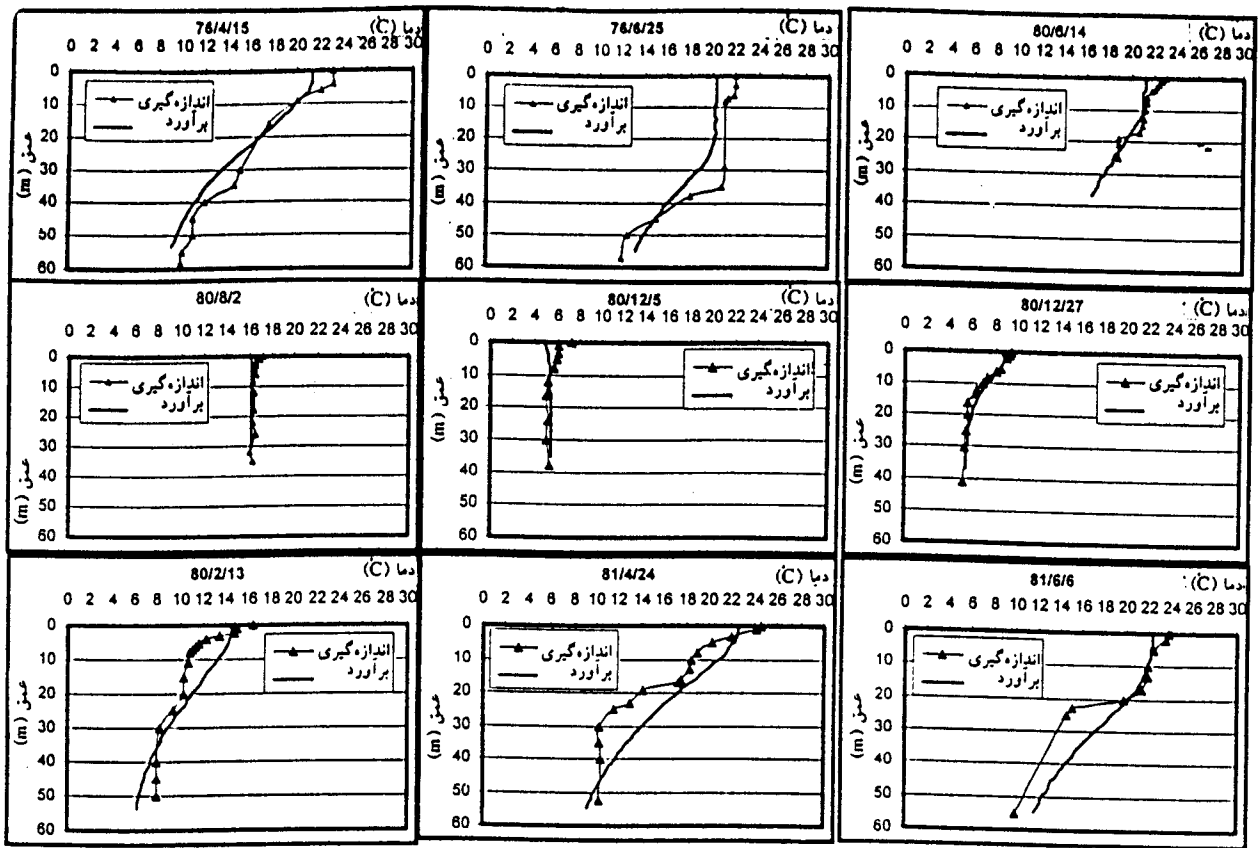 76/4/15 دما (C)
0 2 4 6 8 10 12 14 16 18 20 22 24 26 28 30
0
10
20
30
40
50
60
عمق (m)
اندازه‌گیری
برآورد
76/6/25 دما (C)
0 2 4 6 8 10 12 14 16 18 20 22 24 26 28 30
0
10
20
30
40
50
60
عمق (m)
اندازه‌گیری
برآورد
80/6/14 دما (C)
0 2 4 6 8 10 12 14 16 18 20 22 24 26 28 30
0
10
20
30
40
50
60
عمق (m)
اندازه‌گیری
برآورد
80/8/2 دما (C)
0 2 4 6 8 10 12 14 16 18 20 22 24 26 28 30
0
10
20
30
40
50
60
عمق (m)
اندازه‌گیری
برآورد
80/12/5 دما (C)
0 2 4 6 8 10 12 14 16 18 20 22 24 26 28 30
0
10
20
30
40
50
60
عمق (m)
اندازه‌گیری
برآورد
80/12/27 دما (C)
0 2 4 6 8 10 12 14 16 18 20 22 24 26 28 30
0
10
20
30
40
50
60
عمق (m)
اندازه‌گیری
برآورد
80/2/13 دما (C)
0 2 4 6 8 10 12 14 16 18 20 22 24 26 28 30
0
10
20
30
40
50
60
عمق (m)
اندازه‌گیری
برآورد
81/4/24 دما (C)
0 2 4 6 8 10 12 14 16 18 20 22 24 26 28 30
0
10
20
30
40
50
60
عمق (m)
اندازه‌گیری
برآورد
81/6/6 دما (C)
0 2 4 6 8 10 12 14 16 18 20 22 24 26 28 30
0
10
20
30
40
50
60
عمق (m)
اندازه‌گیری
برآورد